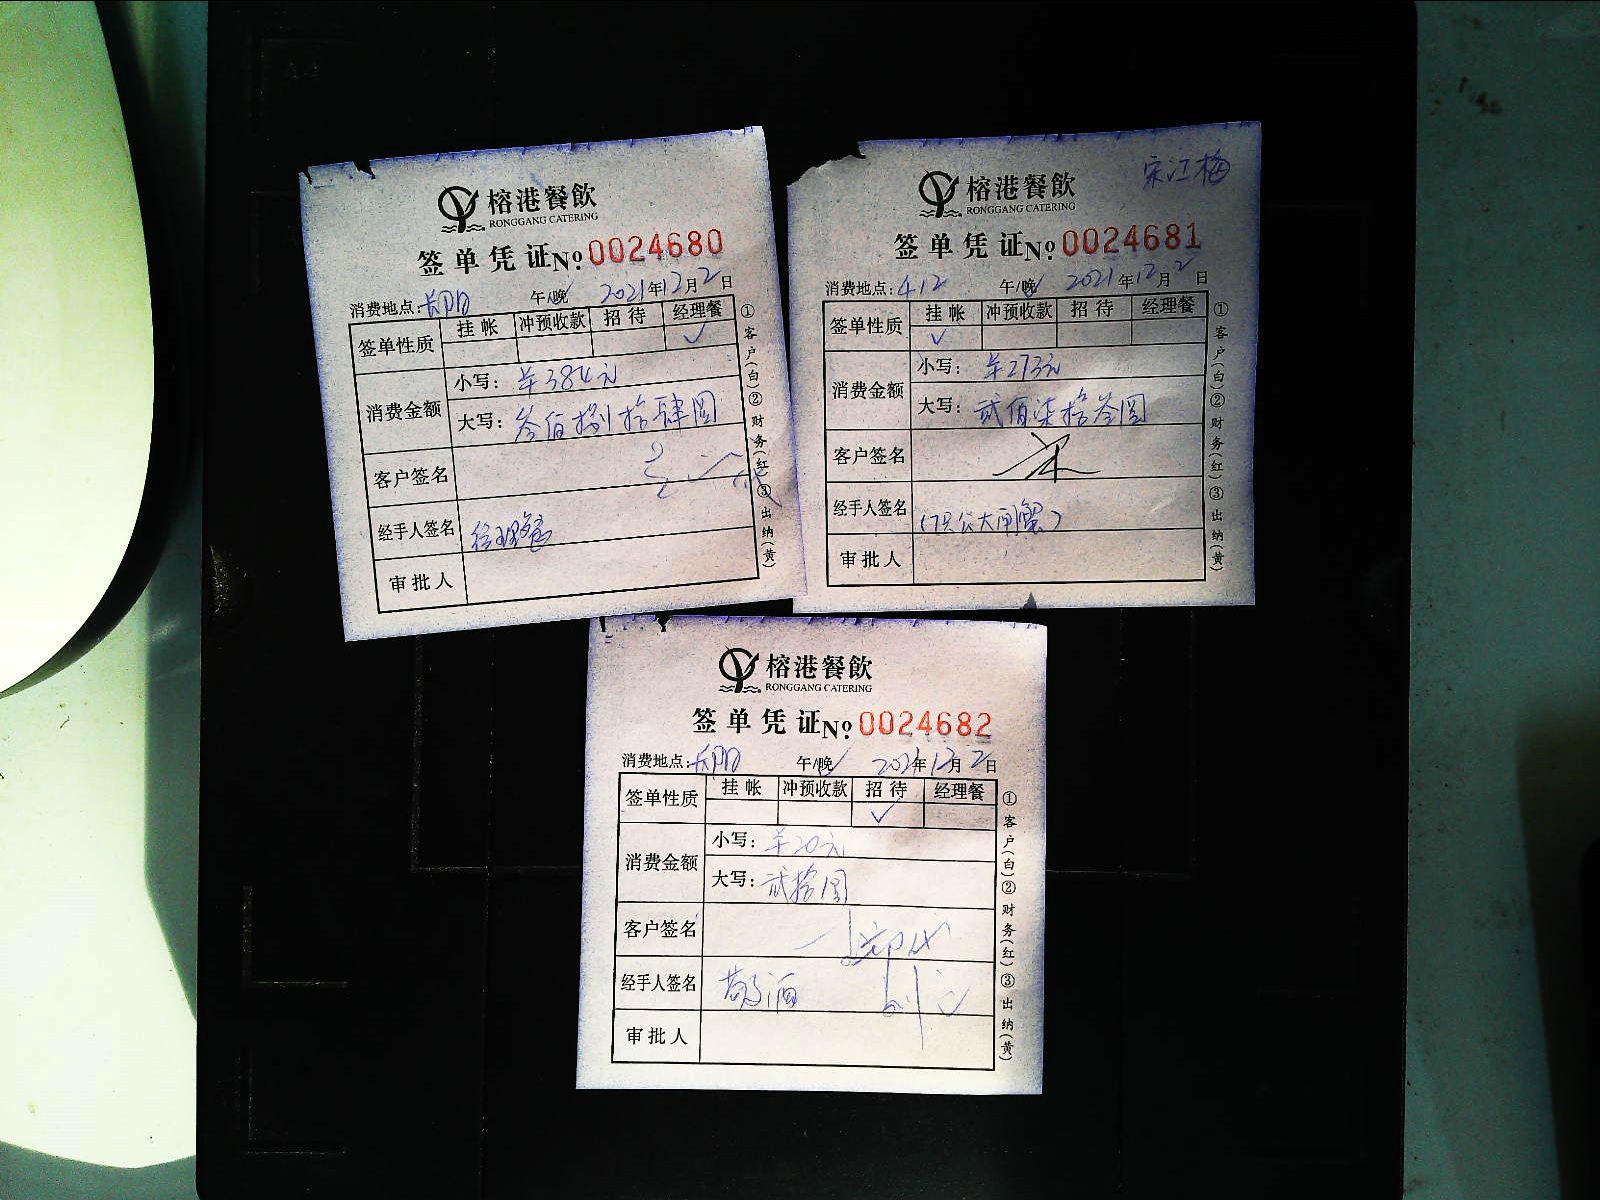 榕港餐飲
RONGGANG CATERING
签单凭证 No 0024680
消费地点: 午/晚 2021年12月2日
签单性质 挂帐 冲预收款 招待 经理餐
✓
消费金额
小写: ¥384元
大写: 叁佰捌拾肆圆
客户签名
经手人签名
审批人
①客户(白)②财务(红)③出纳(黄)
宋江梅
榕港餐飲
RONGGANG CATERING
签单凭证 No 0024681
消费地点: 412 午/晚 2021年12月2日
签单性质 挂帐 冲预收款 招待 经理餐
✓
消费金额
小写: ¥273元
大写: 贰佰柒拾叁圆
客户签名
经手人签名 (7只公大闸蟹)
审批人
①客户(白)②财务(红)③出纳(黄)
榕港餐飲
RONGGANG CATERING
签单凭证 No 0024682
消费地点: 午/晚 2021年12月2日
签单性质 挂帐 冲预收款 招待 经理餐
✓
消费金额
小写: ¥20元
大写: 贰拾圆
客户签名
经手人签名
审批人
①客户(白)②财务(红)③出纳(黄)